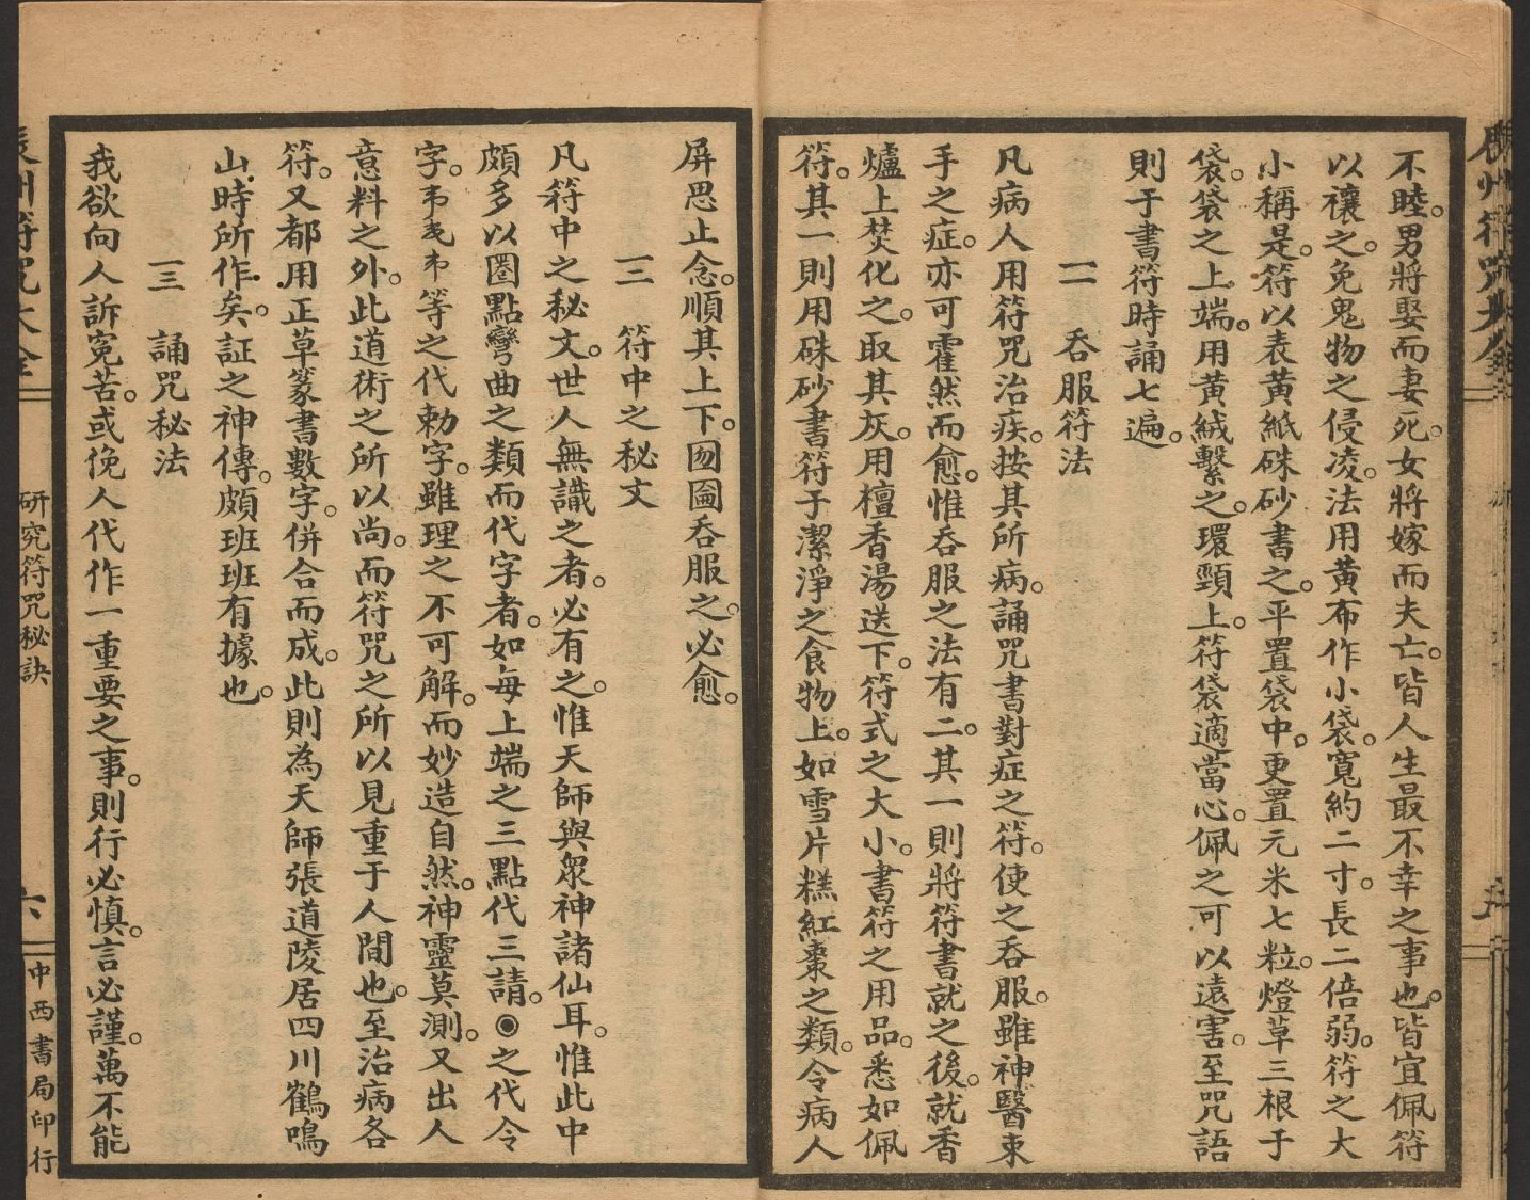 不睦。男將娶而妻死。女將嫁而夫亡。皆人生最不幸之事也。皆宜佩符
以禳之。免鬼物之侵凌。法用黃布作小袋。寬約二寸。長二倍弱。符之大
小稱是。符以表黃紙硃砂書之。平置袋中。更置元米七粒。燈草三根于
袋。袋之上端。用黃絨繫之。環頸上。符袋適當心。佩之可以遠害。至咒語
則于書符時誦七遍。
一二　吞服符法
凡病人用符咒治疾。按其所病。誦咒書對症之符。使之吞服。雖神醫束
手之症。亦可霍然而愈。惟吞服之法有二。其一則將符書就之後。就香
爐上焚化之。取其灰。用檀香湯送下。符式之大小。書符之用品。悉如佩
符。其一則用硃砂書符于潔淨之食物上。如雪片糕紅棗之類。令病人
屏思止念。順其上下。囫圇吞服之。必愈。
一三　符中之秘文
凡符中之秘文。世人無識之者。必有之。惟天師與眾神諸仙耳。惟此中
頗多以圈點彎曲之類而代字者。如每上端之三點代三請。◉之代令
字。等之代勅字。雖理之不可解。而妙造自然。神靈莫測。又出人
意料之外。此道術之所以尚。而符咒之所以見重于人間也。至治病各
符。又都用正草篆書數字。併合而成。此則為天師張道陵居四川鶴鳴
山時所作矣。証之神傳。頗班班有據也。
一三　誦咒秘法
我欲向人訴冤苦。或俛人代作一重要之事。則行必慎。言必謹。萬不能
研究符咒秘訣
六
中西書局印行